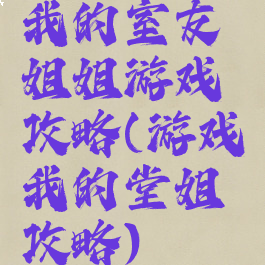 我的室友
姐姐游戏
攻略(游戏
我的堂姐
攻略)